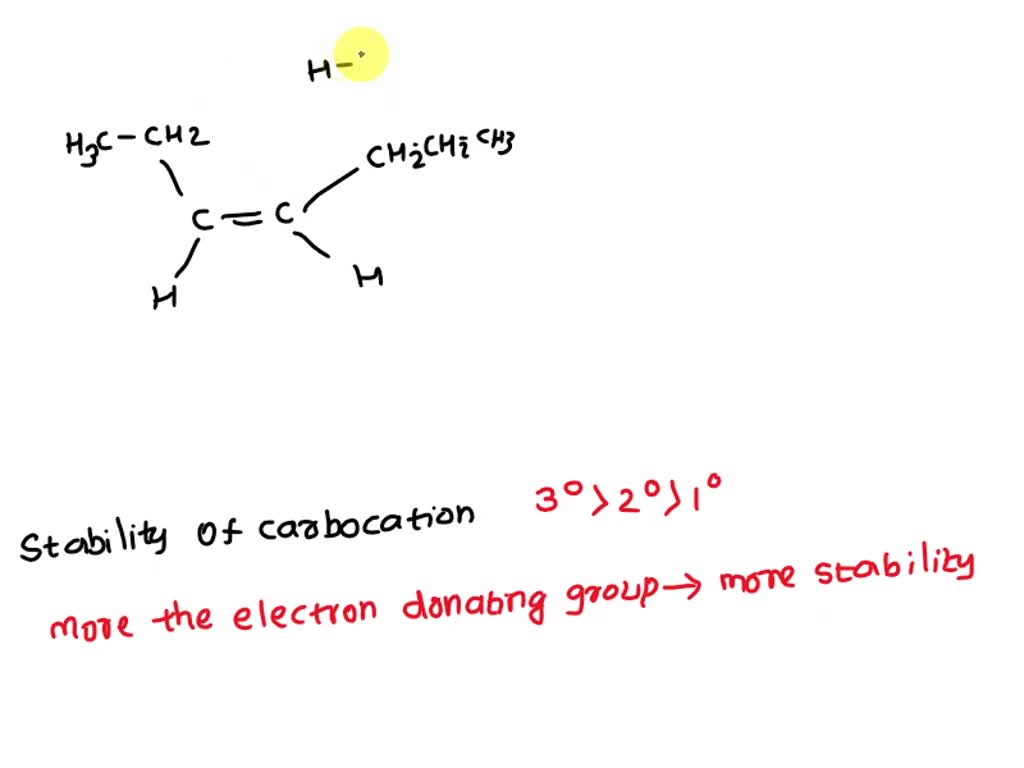 H-
H3C-CH2
CH2CH2CH3
C=C
H
H
Stability of carbocation 3°>2°>1°
more the electron donating group→ more stability